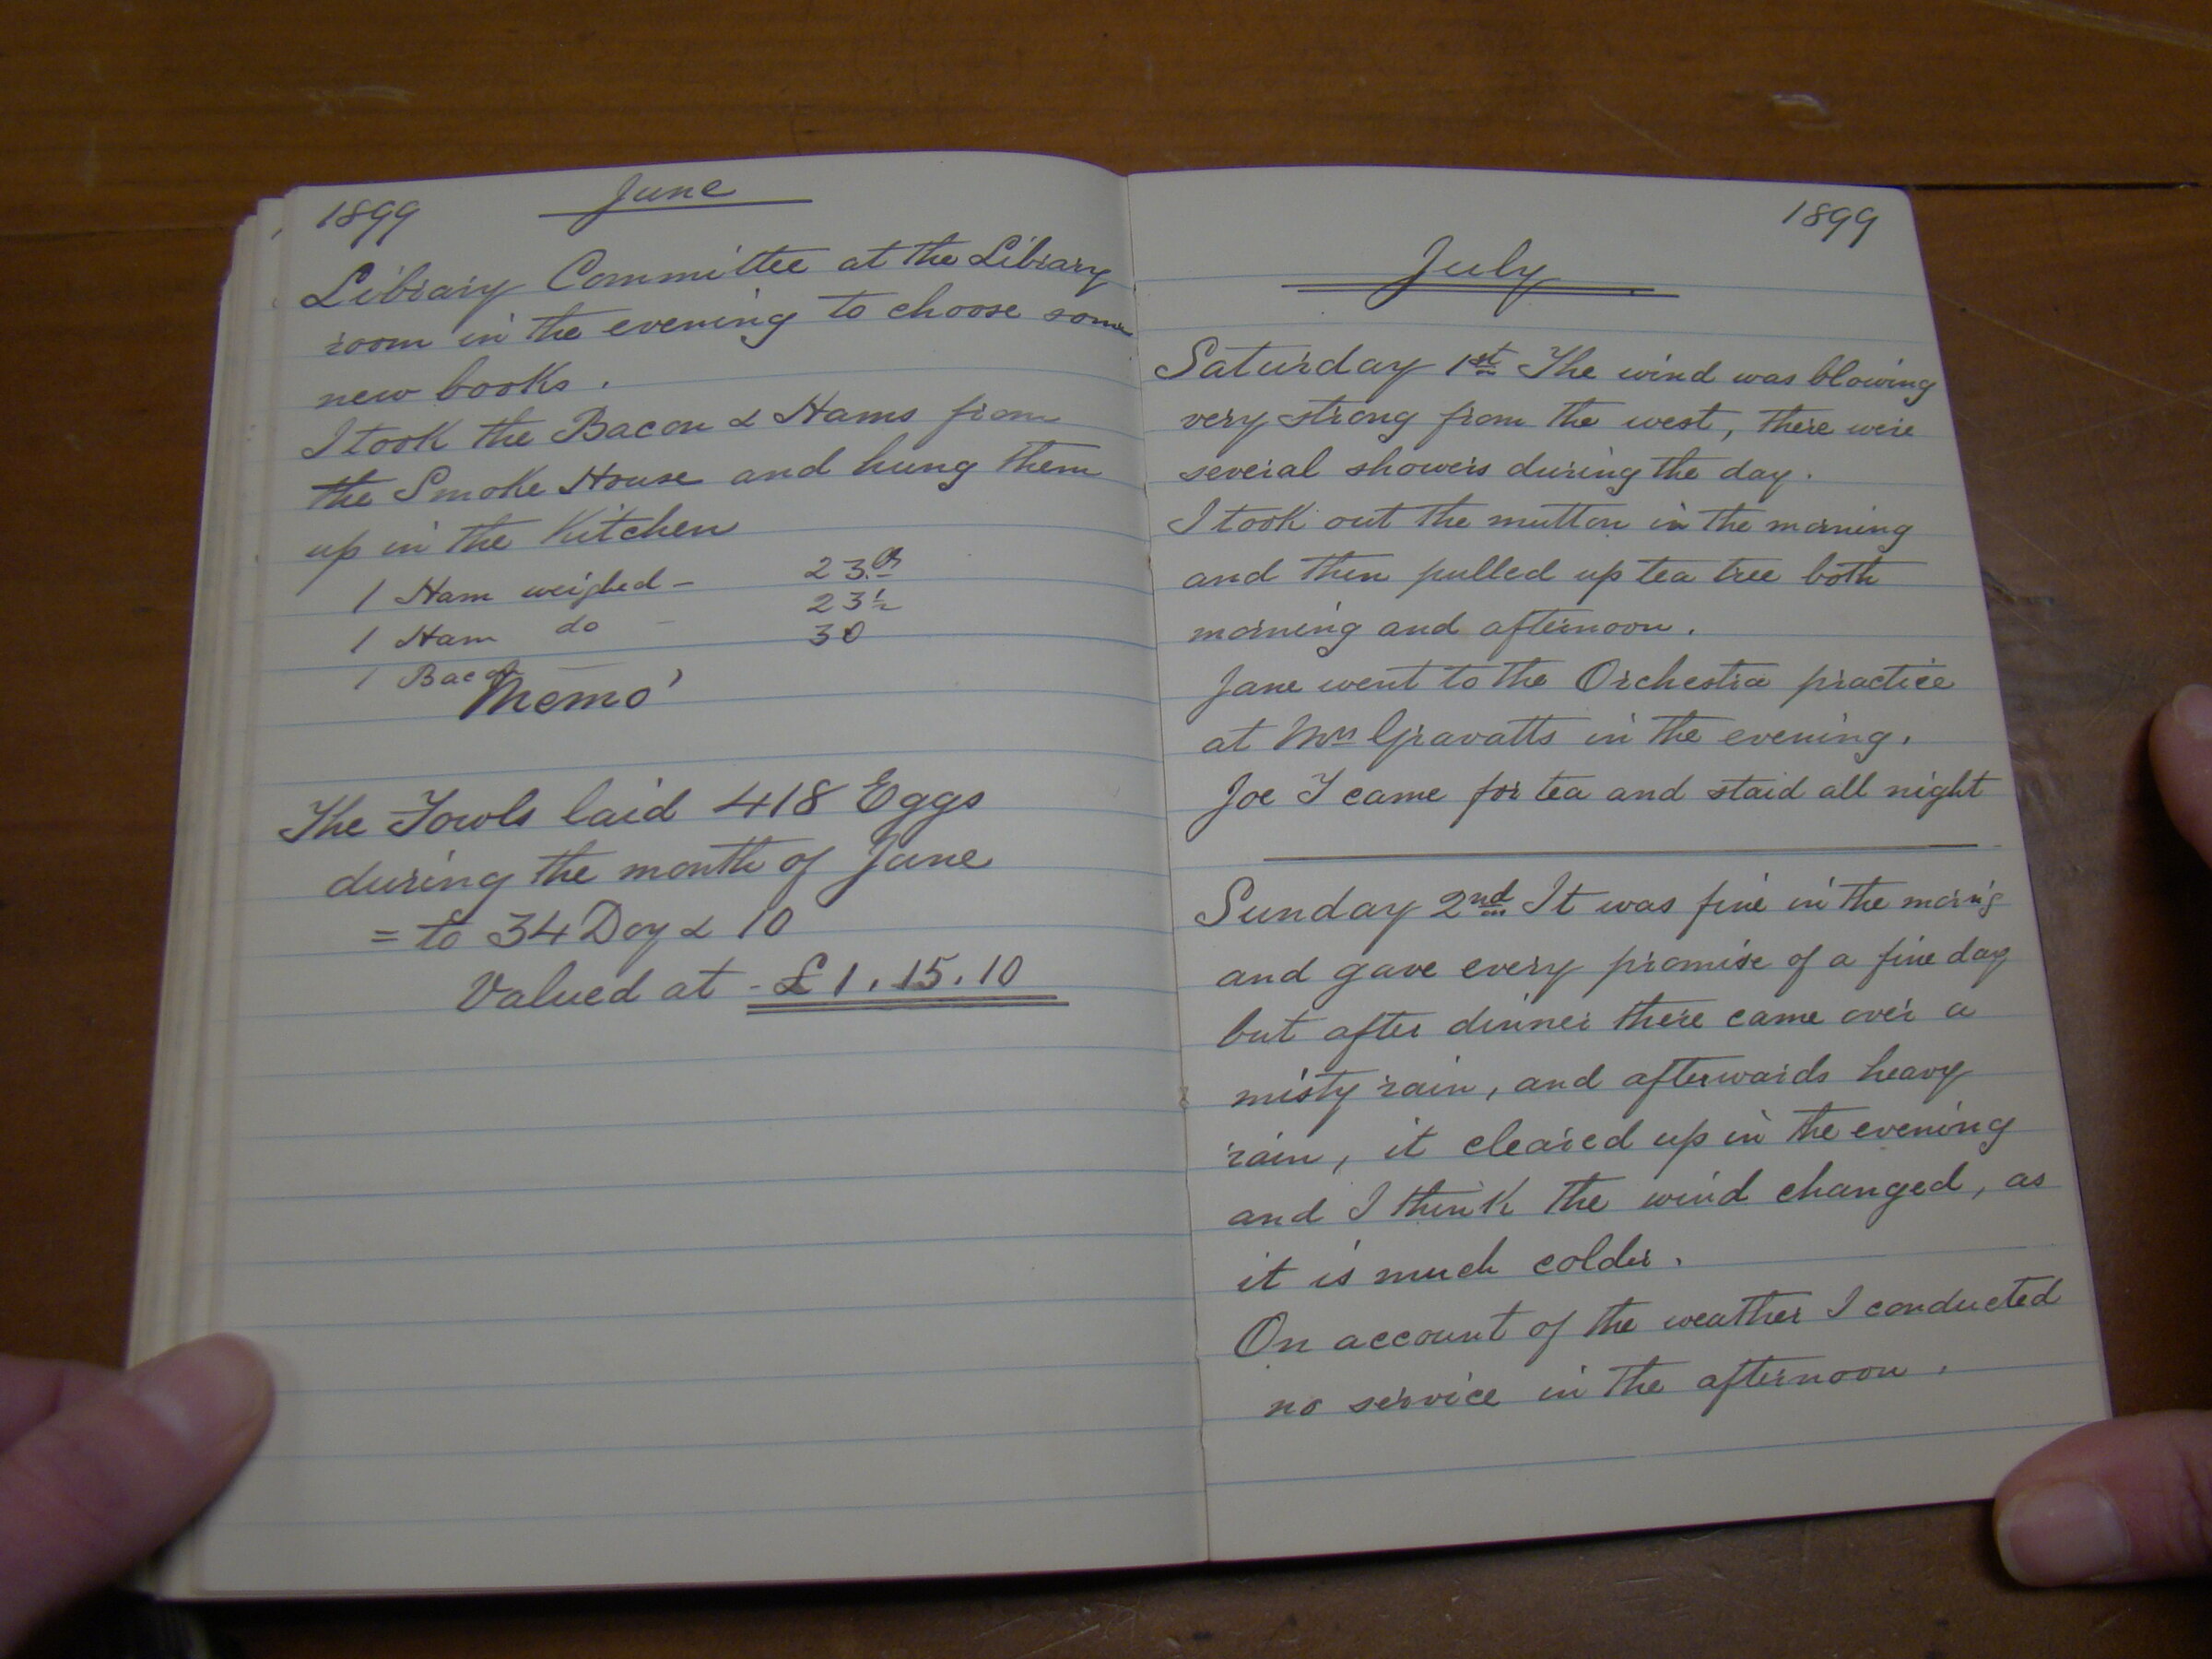 1899 June
Library Committee at the Library
room in the evening to choose some
new books.
I took the Bacon & Hams from
the Smoke House and hung them
up in the Kitchen
1 Ham weighed - 23 lb
1 Ham do - 23½
1 Bacon — 30
Memo'
The Fowls laid 418 Eggs
during the month of June
= to 34 Doz & 10
Valued at - £1.15.10
1899
July
Saturday 1st The wind was blowing
very strong from the west, there were
several showers during the day.
I took out the mutton in the morning
and then pulled up tea tree both
morning and afternoon.
Jane went to the Orchestra practice
at Mrs Gravatts in the evening.
Joe I came for tea and staid all night
Sunday 2nd It was fine in the morn'g
and gave every promise of a fine day
but after dinner there came over a
misty rain, and afterwards heavy
rain, it cleared up in the evening
and I think the wind changed, as
it is much colder.
On account of the weather I conducted
no service in the afternoon.